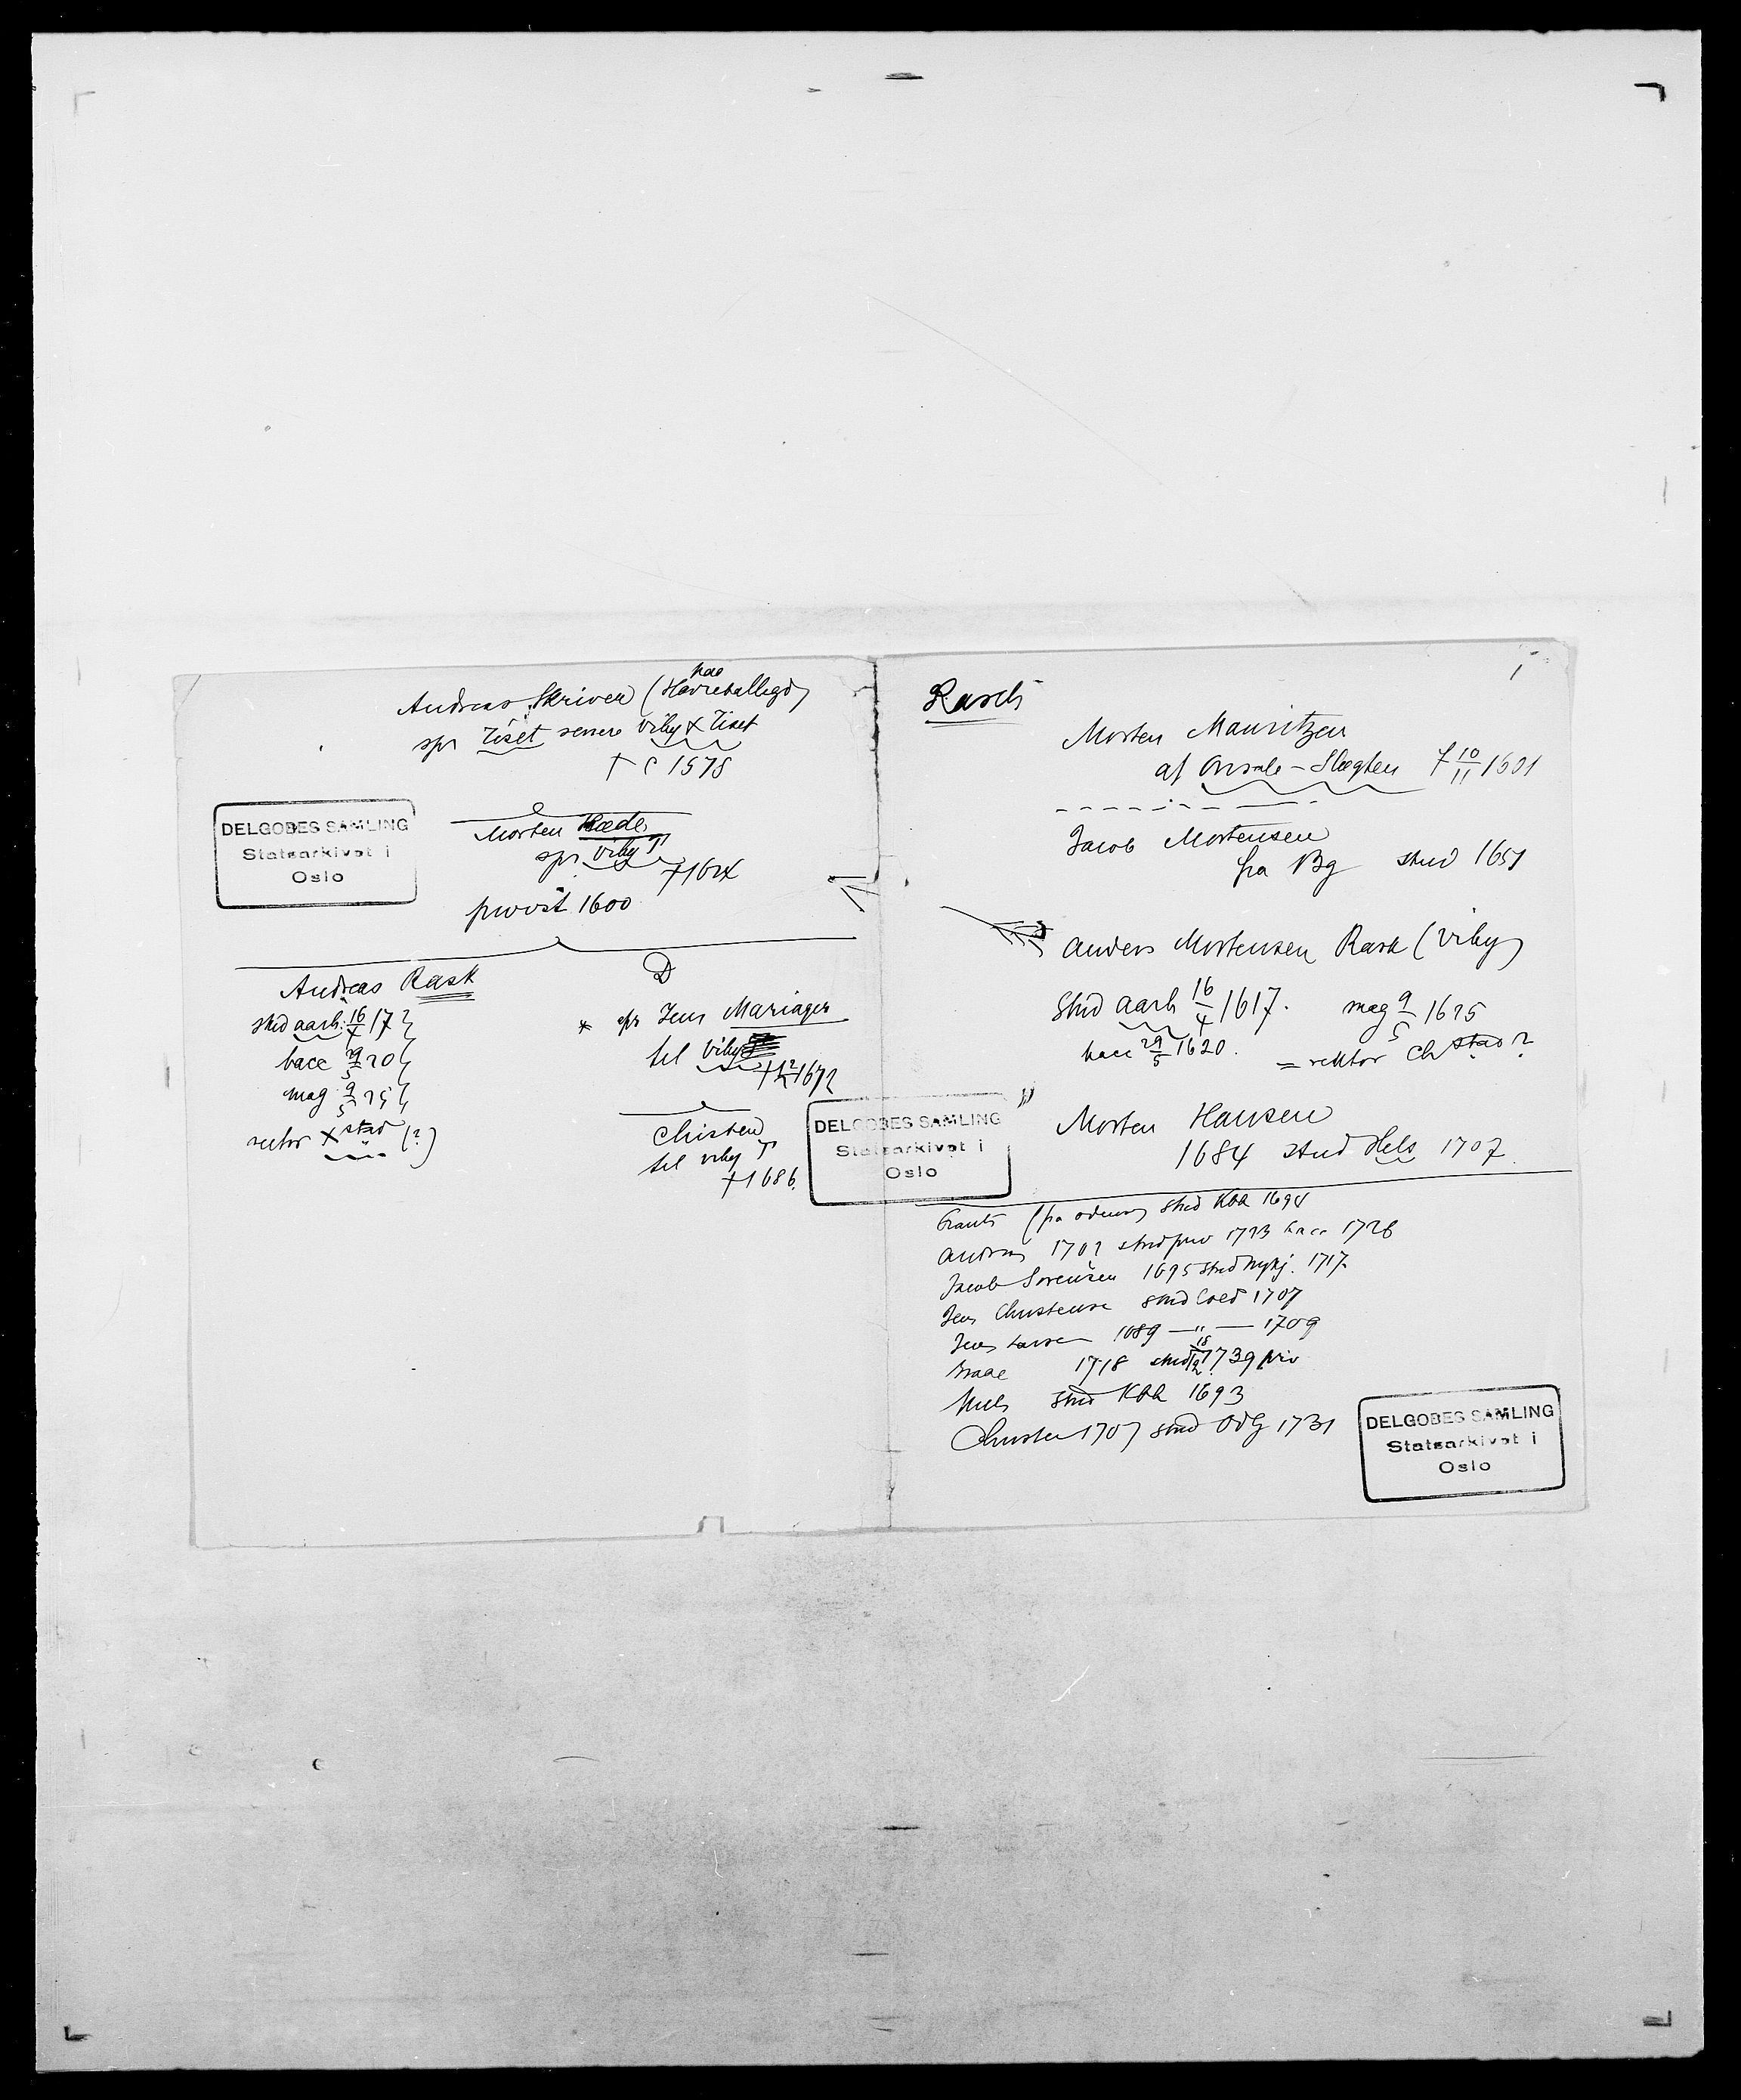 Andreas Skriver (Havreballegd)
spr Tiset senere Viby & Tiset
† c 1578
DELGOBES SAMLING
Statsarkivet i
Oslo
Morten Hæde
spr Viby J
†1624
provst 1600
Andreas Rask
stud aarh: 16/4 17
bacc 29/5 20
mag 9/5 25
rector X stad (?)
D
* spr Jens Mariager
til Viby
1672
Christen
til Viby J
†1686.
DELGOBES SAMLING
Statsarkivet i
Oslo
Rasch
Morten Mauritzen
af Onsale-Slægten † 10/11 1601
Jacob Mortensen
fra Bg stud 1651
Anders Mortensen Rask (Viby)
Stud aarh 16/4 1617. mag 9/5 1625
bacc 29/5 1620. = rektor Ch stad?
Morten Hansen
1684 stud Hels 1707.
(fra Odense) stud Kbh 1694
Andreas 1702 stud priv 1723 bacc 1726
Jacob Sorensen 1695 stud Nykj. 1717
Jens Christensen stud 1707
Jens Larsen 1689 — " — 1709
1718 stud 18/12 1739 priv
Niels stud Kbh 1693
Christen 1707 stud Odg 1731
DELGOBES SAMLING
Statsarkivet i
Oslo